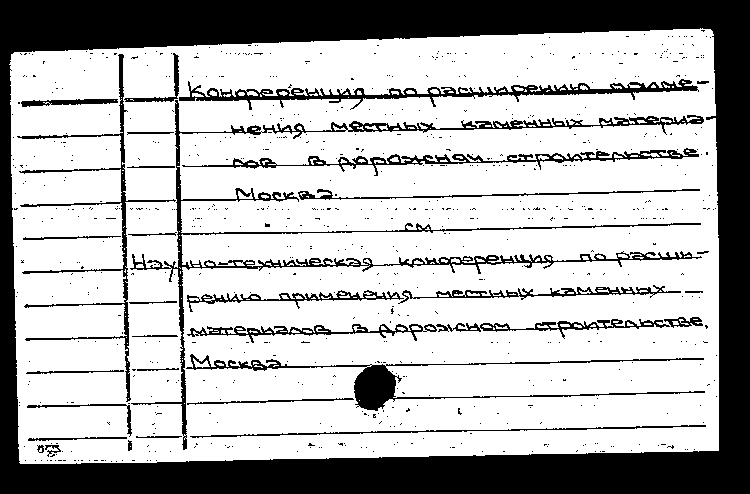 Конференция по расширению приме-
нения местных каменных материа-
лов в дорожном строительстве.
Москва.
см
Научно-техническая конференция по расши-
рению применения местных каменных
материалов в дорожном строительстве,
Москва.